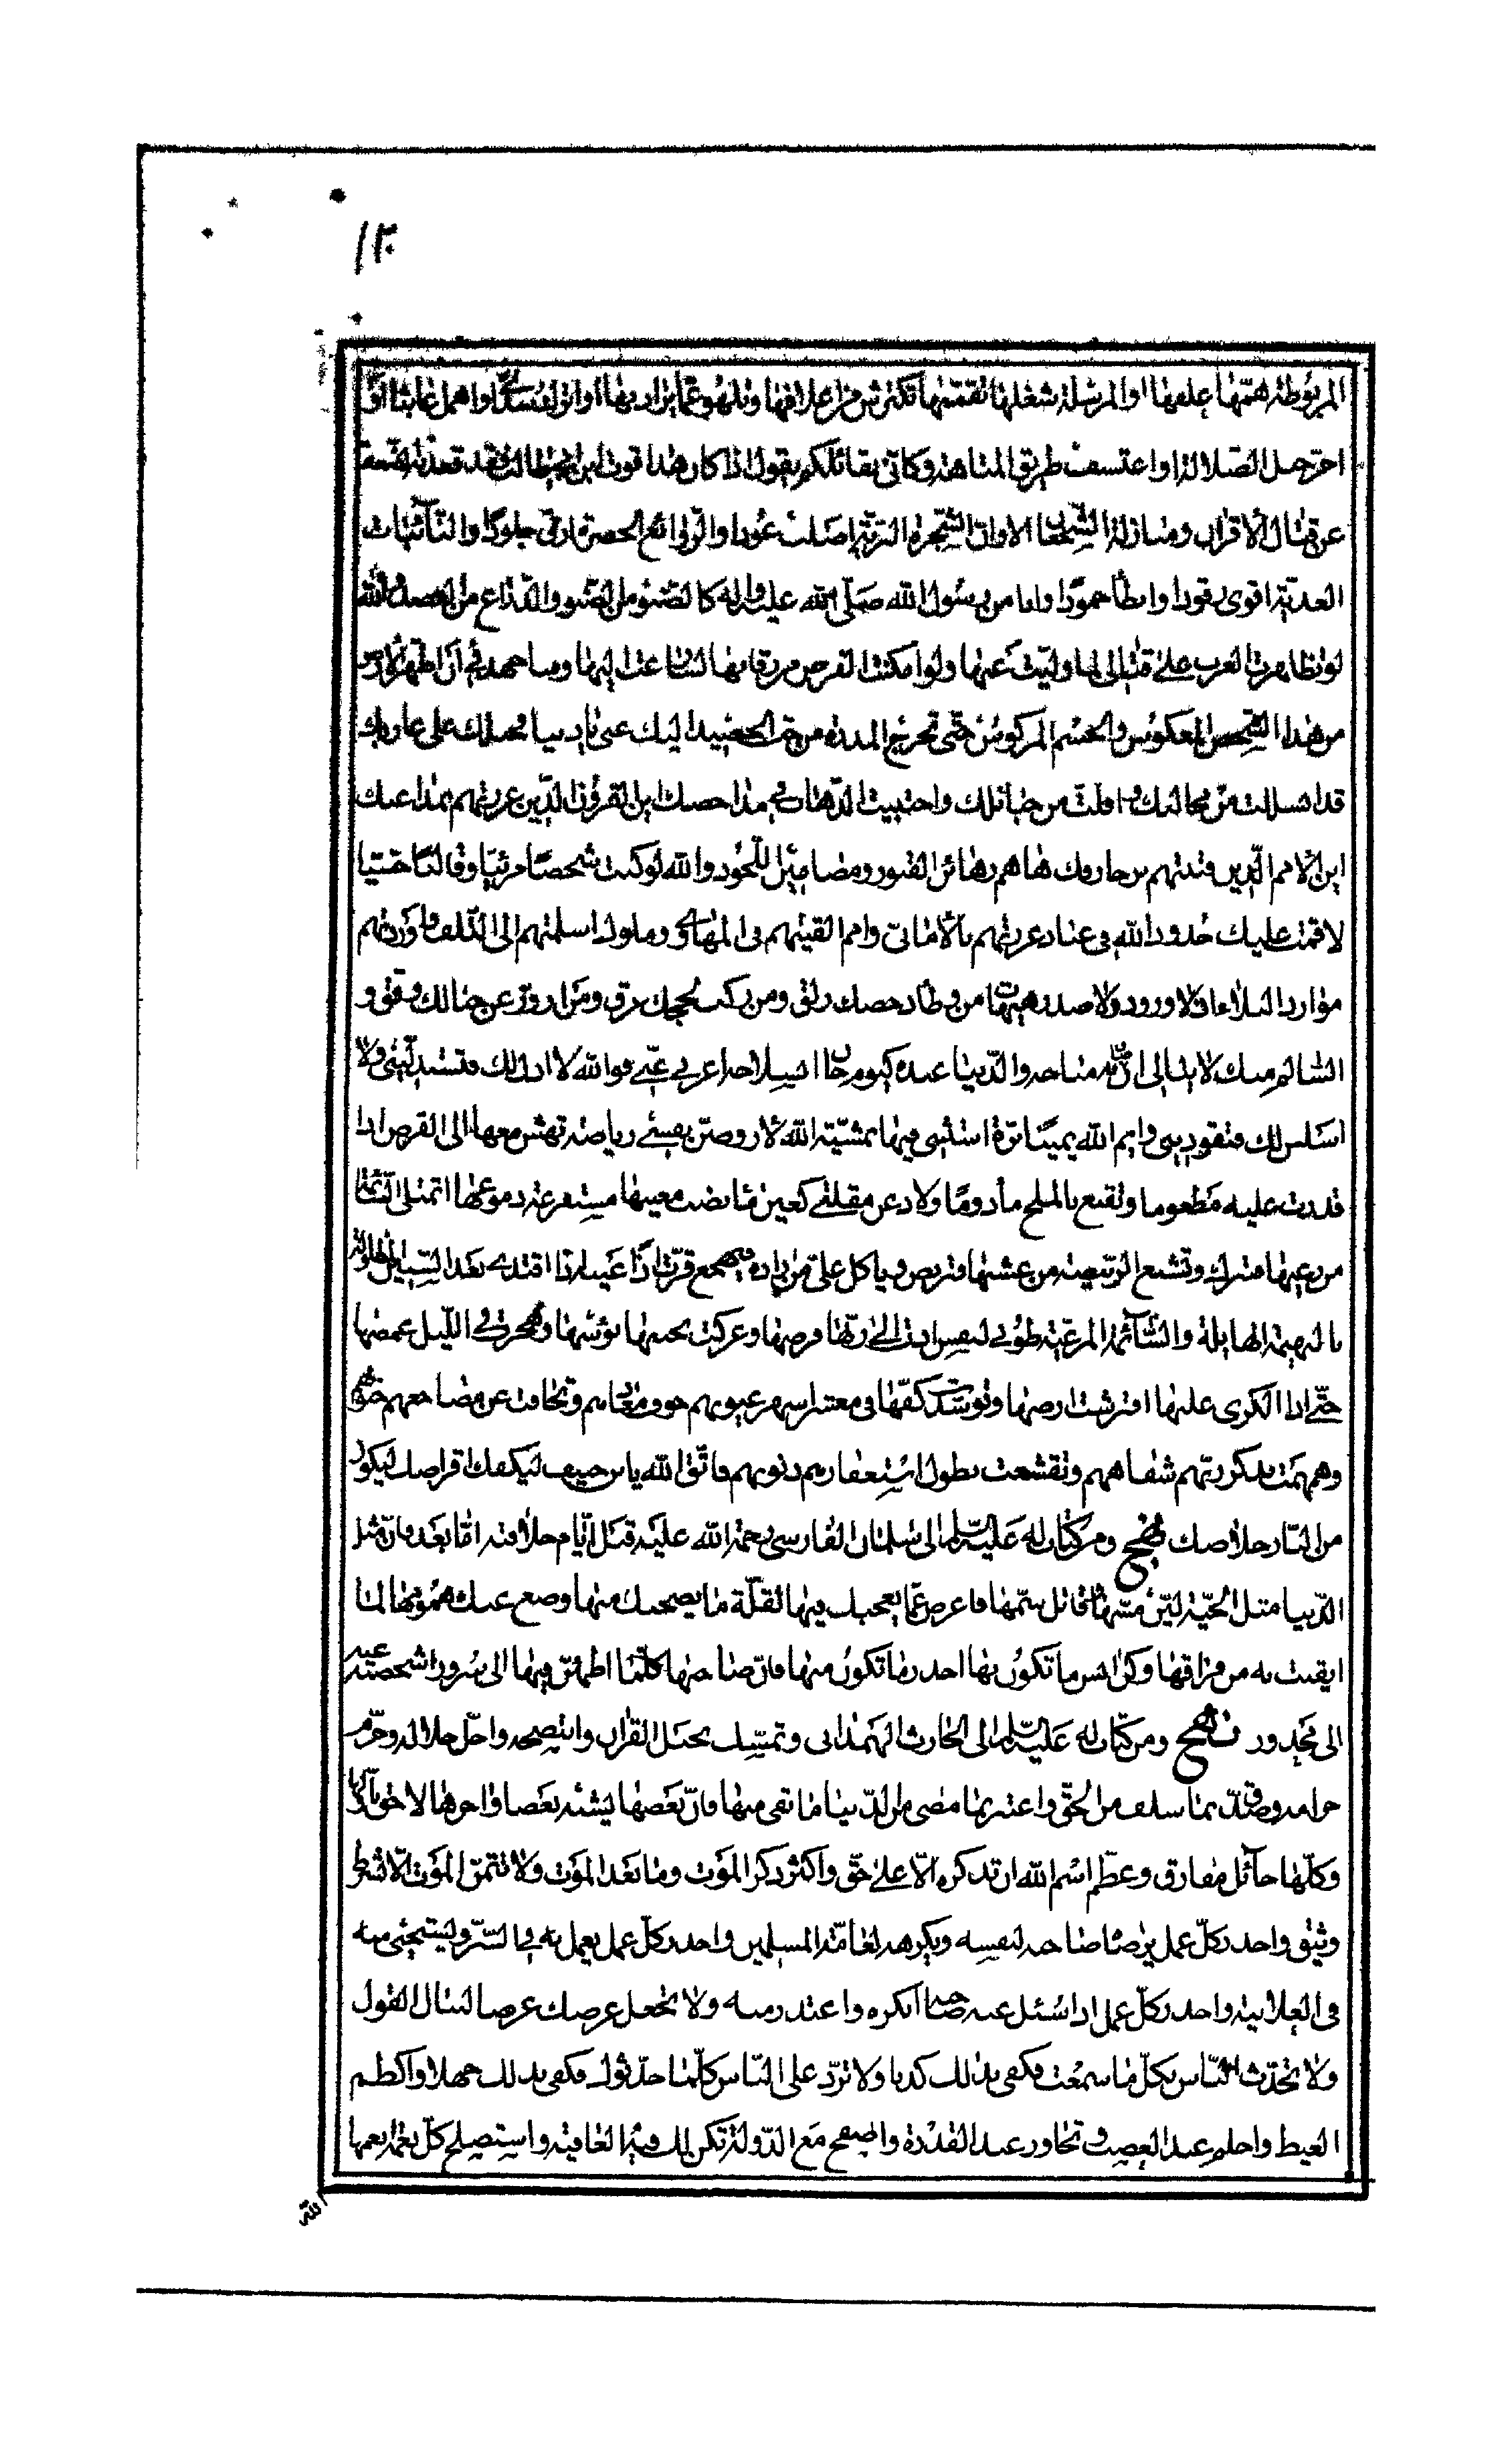 ١٣٠
المربوطة همّها علفها او المرسلة شغلها تقمّمها تكترش من اعلافها وتلهو عمّا يراد بها او اترك سدًى او اهمل عابثا او
اجرّ حبل الضلالة او اعتسف طريق المتاهة وكانّى بقائلكم يقول اذا كان هذا قوت ابن ابيطالب فقد قعد به الضعف
عن قتال الاقران ومنازلة الشجعان الا وانّ الشجرة البرّيّة اصلب عودا والرّوائع الخضرة ارقّ جلودًا والنابتات
العذية اقوى وقودا وابطأ خمودًا وانا من رسول الله صلّى الله عليه واله كالصنو من الصنو والذّراع من العضد والله
لو تظاهرت العرب على قتالى لما ولّيت عنها ولو امكنت الفرص من رقابها لسارعت اليها وساجهد فى ان اطهّر الارض
من هذا الشخص المعكوس والجسم المركوس حتّى تخرج المدرة من حبّ الحصيد اليك عنى يا دنيا فحبلك على غاربك
قد انسللت من مخالبك وافلتّ من حبائلك واجتنبت الذّهاب فى مداحضك اين القرون الّذين غررتهم بمداعبك
اين الامم الّذين فتنتهم بزخارفك ها هم رهائن القبور ومضامين اللّحود والله لو كنت شخصًا مرئيّا وقالبًا حسّيّا
لاقمت عليك حدود الله فى عباد غررتهم بالامانى وامم القيتهم فى المهاوى وملوك اسلمتهم الى التّلف واوردتهم
موارد البلاء اذ لا ورود ولا صدر هيهات من وطأ دحضك زلق ومن ركب لججك غرق ومن ازورّ عن حبالك وفّق و
السّالم منك لا يبالى ان ضاق به مناخه والدّنيا عنده كيوم حان انسلاخه اعزبى عنّى فوالله لا اذلّ لك فتستذلّينى ولا
اسلس لك فتقودينى وايم الله يمينًا برّة استثنى فيها بمشيّة الله لاروضنّ نفسى رياضة تهشّ معها الى القرص اذا
قدرت عليه مطعوما وتقنع بالملح مأدومًا ولادعنّ مقلتى كعين ماء نضب معينها مستفرغة دموعها اتمتلى السّائمة
من رعيها فتبرك وتشبع الرّبيضة من عشبها فتربض وياكل علىّ من زاده فيهجع قرّت اذًا عينه اذا اقتدى بعد السّنين المتطاولة
بالبهيمة الهاملة والسّائمة المرعيّة طوبى لنفس ادّت الى ربّها فرضها وعركت بجنبها بؤسها وهجرت فى اللّيل غمضها
حتّى اذا الكرى غلبها افترشت ارضها وتوسّدت كفّها فى معشر اسهر عيونهم خوف معادهم وتجافت عن مضاجعهم جنوبهم
وهمهمت بذكر ربّهم شفاههم وتقشعت بطول استغفارهم ذنوبهم فاتّق الله يابن حنيف لتكفك اقراصك ليكون
من النّار خلاصك نهج ومن كتاب له عليه السّلم الى سلمان الفارسى رحمة الله عليه قبل ايّام خلافته امّا بعد فانّ مثل
الدّنيا مثل الحيّة ليّن مسّها قاتل سمّها فاعرض عمّا يعجبك فيها لقلّة ما يصحبك منها وضع عنك همومها لما
ايقنت به من فراقها وكن انس ما تكون بها احذر ما تكون منها فانّ صاحبها كلّما اطمئنّ فيها الى سرور اشخصته عنه
الى محذور نهج ومن كتاب له عليه السّلم الى الحارث الهمدانى وتمسّك بحبل القران وانتصحه واحلّ حلاله وحرّم
حرامه وصدّق بما سلف من الحقّ واعتبر بما مضى من الدّنيا ما بقى منها فانّ بعضها يشبه بعضا واخرها لاحق باوّلها
وكلّها حائل مفارق وعظّم اسم الله ان تذكره الّا على حقّ واكثر ذكر الموت وما بعد الموت ولا تتمنّ الموت الّا بشرط
وثيق واحذر كلّ عمل يرضاه صاحبه لنفسه ويكرهه لعامّة المسلمين واحذر كلّ عمل يعمل به فى السّرّ ويستحيى منه
فى العلانية واحذر كلّ عمل اذا سئل عنه صاحبه انكره واعتذر منه ولا تجعل عرضك غرضا لنبال القول
ولا تحدّث النّاس بكلّ ما سمعت فكفى بذلك كذبا ولا تردّ على النّاس كلّما حدّثوك فكفى بذلك جهلا واكظم
الغيظ واحلم عند الغضب وتجاوز عند القدرة واصفح مع الدّولة تكن لك العاقبة واستصلح كلّ نعمة انعمها
الله